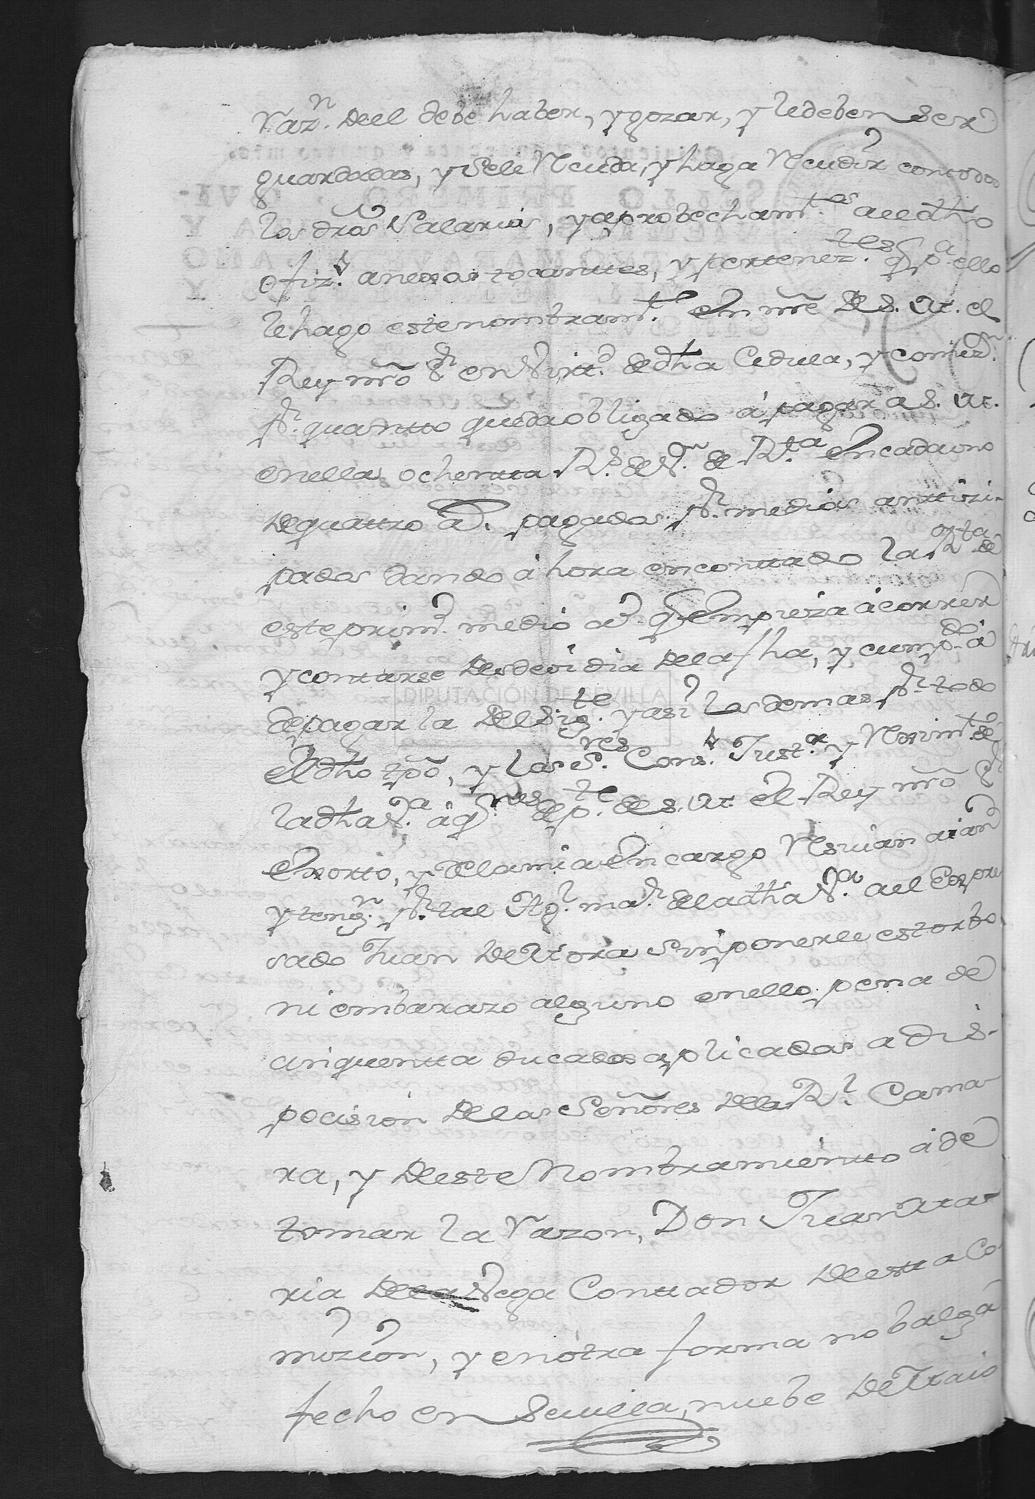 raz.n deel debe haber, y gozar, y le deben ser
guardadas, y sele Recuda, y haga Recudir con todos
los dros Salarios, y aprobecham.tos a el dho
ofiz.o anexos tocantes, y pertenez.tes q p.a ello
le hago este nombram.to en nre de S. M. el
Rey nro S.r en virt.d de dha Cedula, y comis.n
p.r quantto quedo obligado â pagar a S. M.
en ellas ochentta R.s de V.n de R.ta en cada uno
de quattro a.s pagados p.r medias anttizi-
padas dando âhora en conttado la R.ta de
este prim.o medio a.o q empieza â correr
y contarse desde oi dia de la fha, y cump.do â
de pagar la del sig.te y asi las demas p.r todo
el dho tpo, y los S.res Cons.o Just.a y Rexim.to de
la dha V.a â q.nes de p.te de S. M. el Rey nro S.r
Exorto, y de la mia encargo Resivan aian
y teng.n p.r tal Alg.l ma.r de la dha V.a a el Expre
sado Juan de Mora sin ponerle estorbo
ni embarazo alguno en ello pena de
cinquentta ducados aplicados a dis-
posision de los Señores de la R.l Cama
ra, y deeste Nombramientto â de
tomar la razon, Don Juan Ma
ria de la Vega Conttador deestta Co
mizion, y en otra forma no balga
fecho en Sevilla, nuebe de Maio
DIPUTACIÓN DE SEVILLA